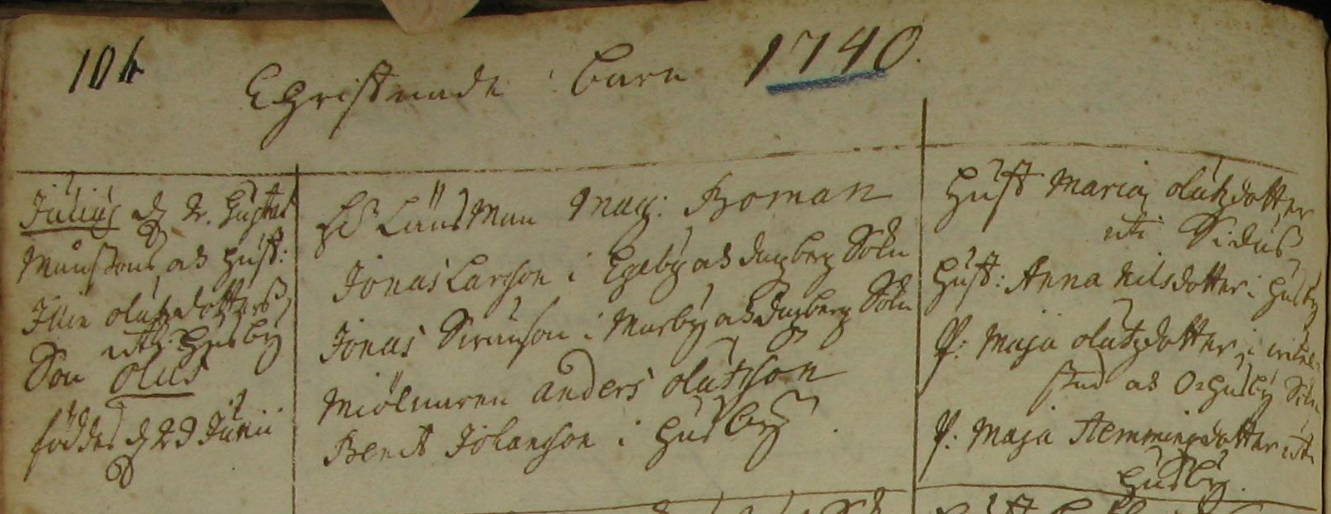 104
Christnade barn 1740.
Julius d 2. Gustaf
Månssons och hust:
Olufzdotters
Son Oluf
föddes d 29 Junii
LänsMan Mag: Boman
Jonas Larsson i Egeby och Dagberg Sokn
Jonas Swensson i Marby och Dagberg Sokn
Miölnaren Anders Olufsson
Bendt Johansson i Husby
Hust Maria Olufzdotter
uti
Hust: Anna Nilsdotter i Husby
P: Maja Olufzdotter i
stad och Ö: Husby Sokn
P: Maja Hemmingsdotter uti
Husby.